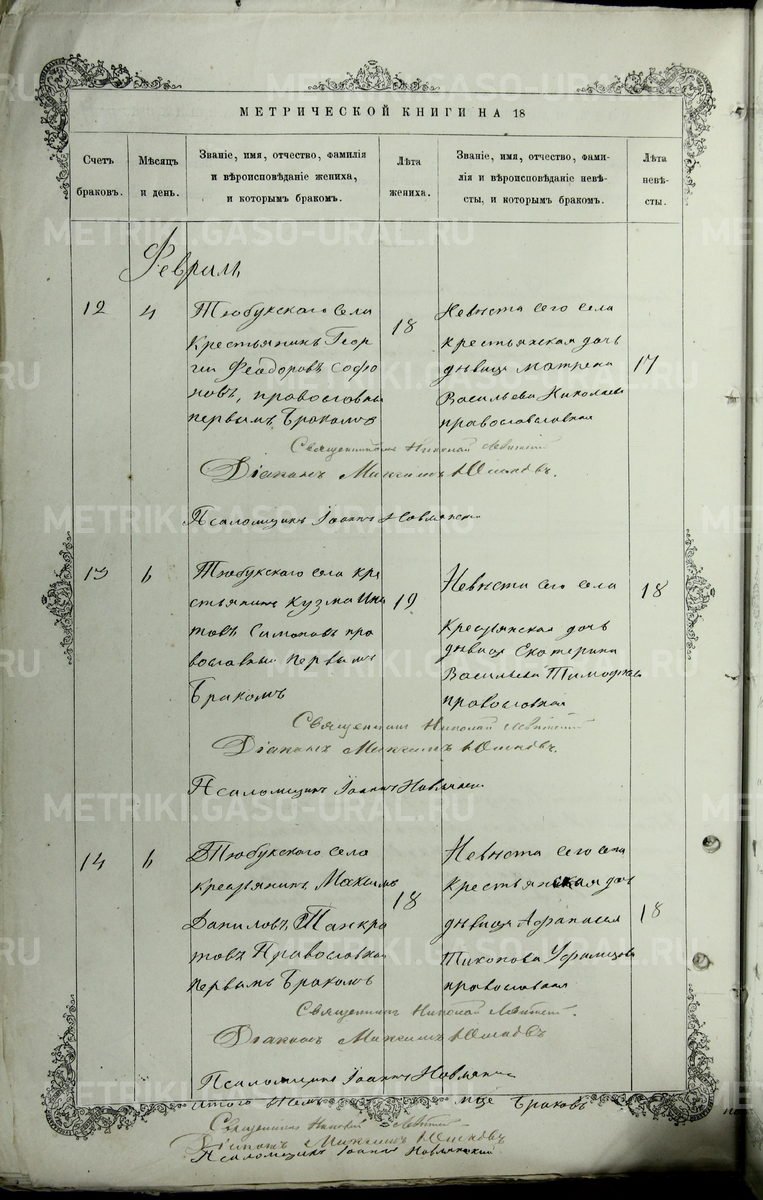 МЕТРИЧЕСКОЙ КНИГИ НА 18
Счетъ браковъ.
Мѣсяцъ и день.
Званіе, имя, отчество, фамилія
и вѣроисповѣданіе жениха,
и которымъ бракомъ.
Лѣта жениха.
Званіе, имя, отчество, фами-
лія и вѣроисповѣданіе невѣ-
сты, и которымъ бракомъ.
Лѣта невѣ-
сты.
Февраль
12
4
Тюбукскаго села
крестьянинъ Геор
гій Феодоровъ Софо
новъ, православный
первымъ бракомъ
18
Невѣста сего села
крестьянская дочь
дѣвица Матрена
Васильева Николаева
православславная
17
Священникъ Николай
Діаконъ Максимъ Юшковъ.
Псаломщикъ Іоаннъ
13
6
Тюбукскаго села кре
стьянинъ Кузма Игна
товъ Симоновъ пра
вославный первымъ
бракомъ
19
Невѣста сего села
крестьянская дочь
дѣвица Екатерина
Васильева Тимофѣева
православная
18
Священникъ Николай
Діаконъ Максимъ Юшковъ.
Псаломщикъ Іоаннъ
14
6
Тюбукскаго села
крестьянинъ Максимъ
Даниловъ Панкра
товъ Православный
первымъ бракомъ
18
Невѣста сего села
крестьянская дочь
дѣвица Афанасія
Тихонова Уфимцова
православная
18
Священникъ Николай
Діаконъ Максимъ Юшковъ
Псаломщикъ Іоаннъ
браковъ
Священникъ Николай
Діаконъ Максимъ Юшковъ
Псаломщикъ Іоаннъ
METRIKI.GASO-URAL.RU